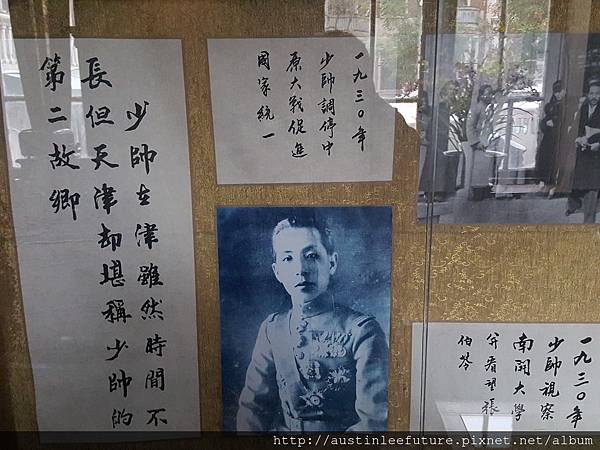 少帥在津雖然時間不
長但天津却堪稱少帥的
第二故鄉
一九三〇年
少帥調停中
原大戰促進
國家統一
一九三〇年
少帥視察
南開大學
并看望張
伯苓
http://austinleefuture.pixnet.net/album